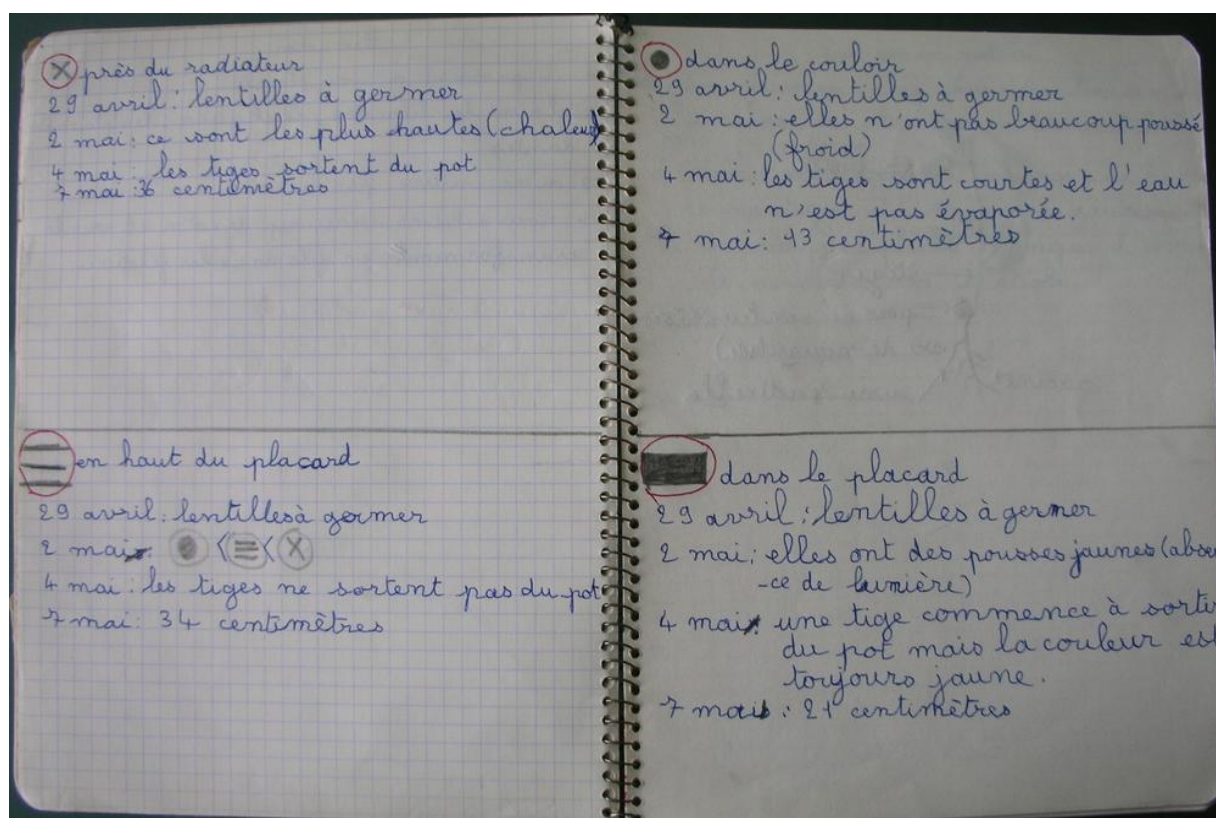 près du radiateur
29 avril : lentilles à germer
2 mai : ce sont les plus hautes (chaleur)
4 mai : les tiges sortent du pot
7 mai : 36 centimètres
en haut du placard
29 avril : lentilles à germer
2 mai : < <
4 mai : les tiges ne sortent pas du pot
7 mai : 34 centimètres
dans le couloir
29 avril : lentilles à germer
2 mai : elles n'ont pas beaucoup poussé
(froid)
4 mai : les tiges sont courtes et l'eau
n'est pas évaporée.
7 mai : 13 centimètres
dans le placard
29 avril : lentilles à germer
2 mai : elles ont des pousses jaunes (absen
-ce de lumière)
4 mai : une tige commence à sortir
du pot mais la couleur est
toujours jaune.
7 mai : 21 centimètres